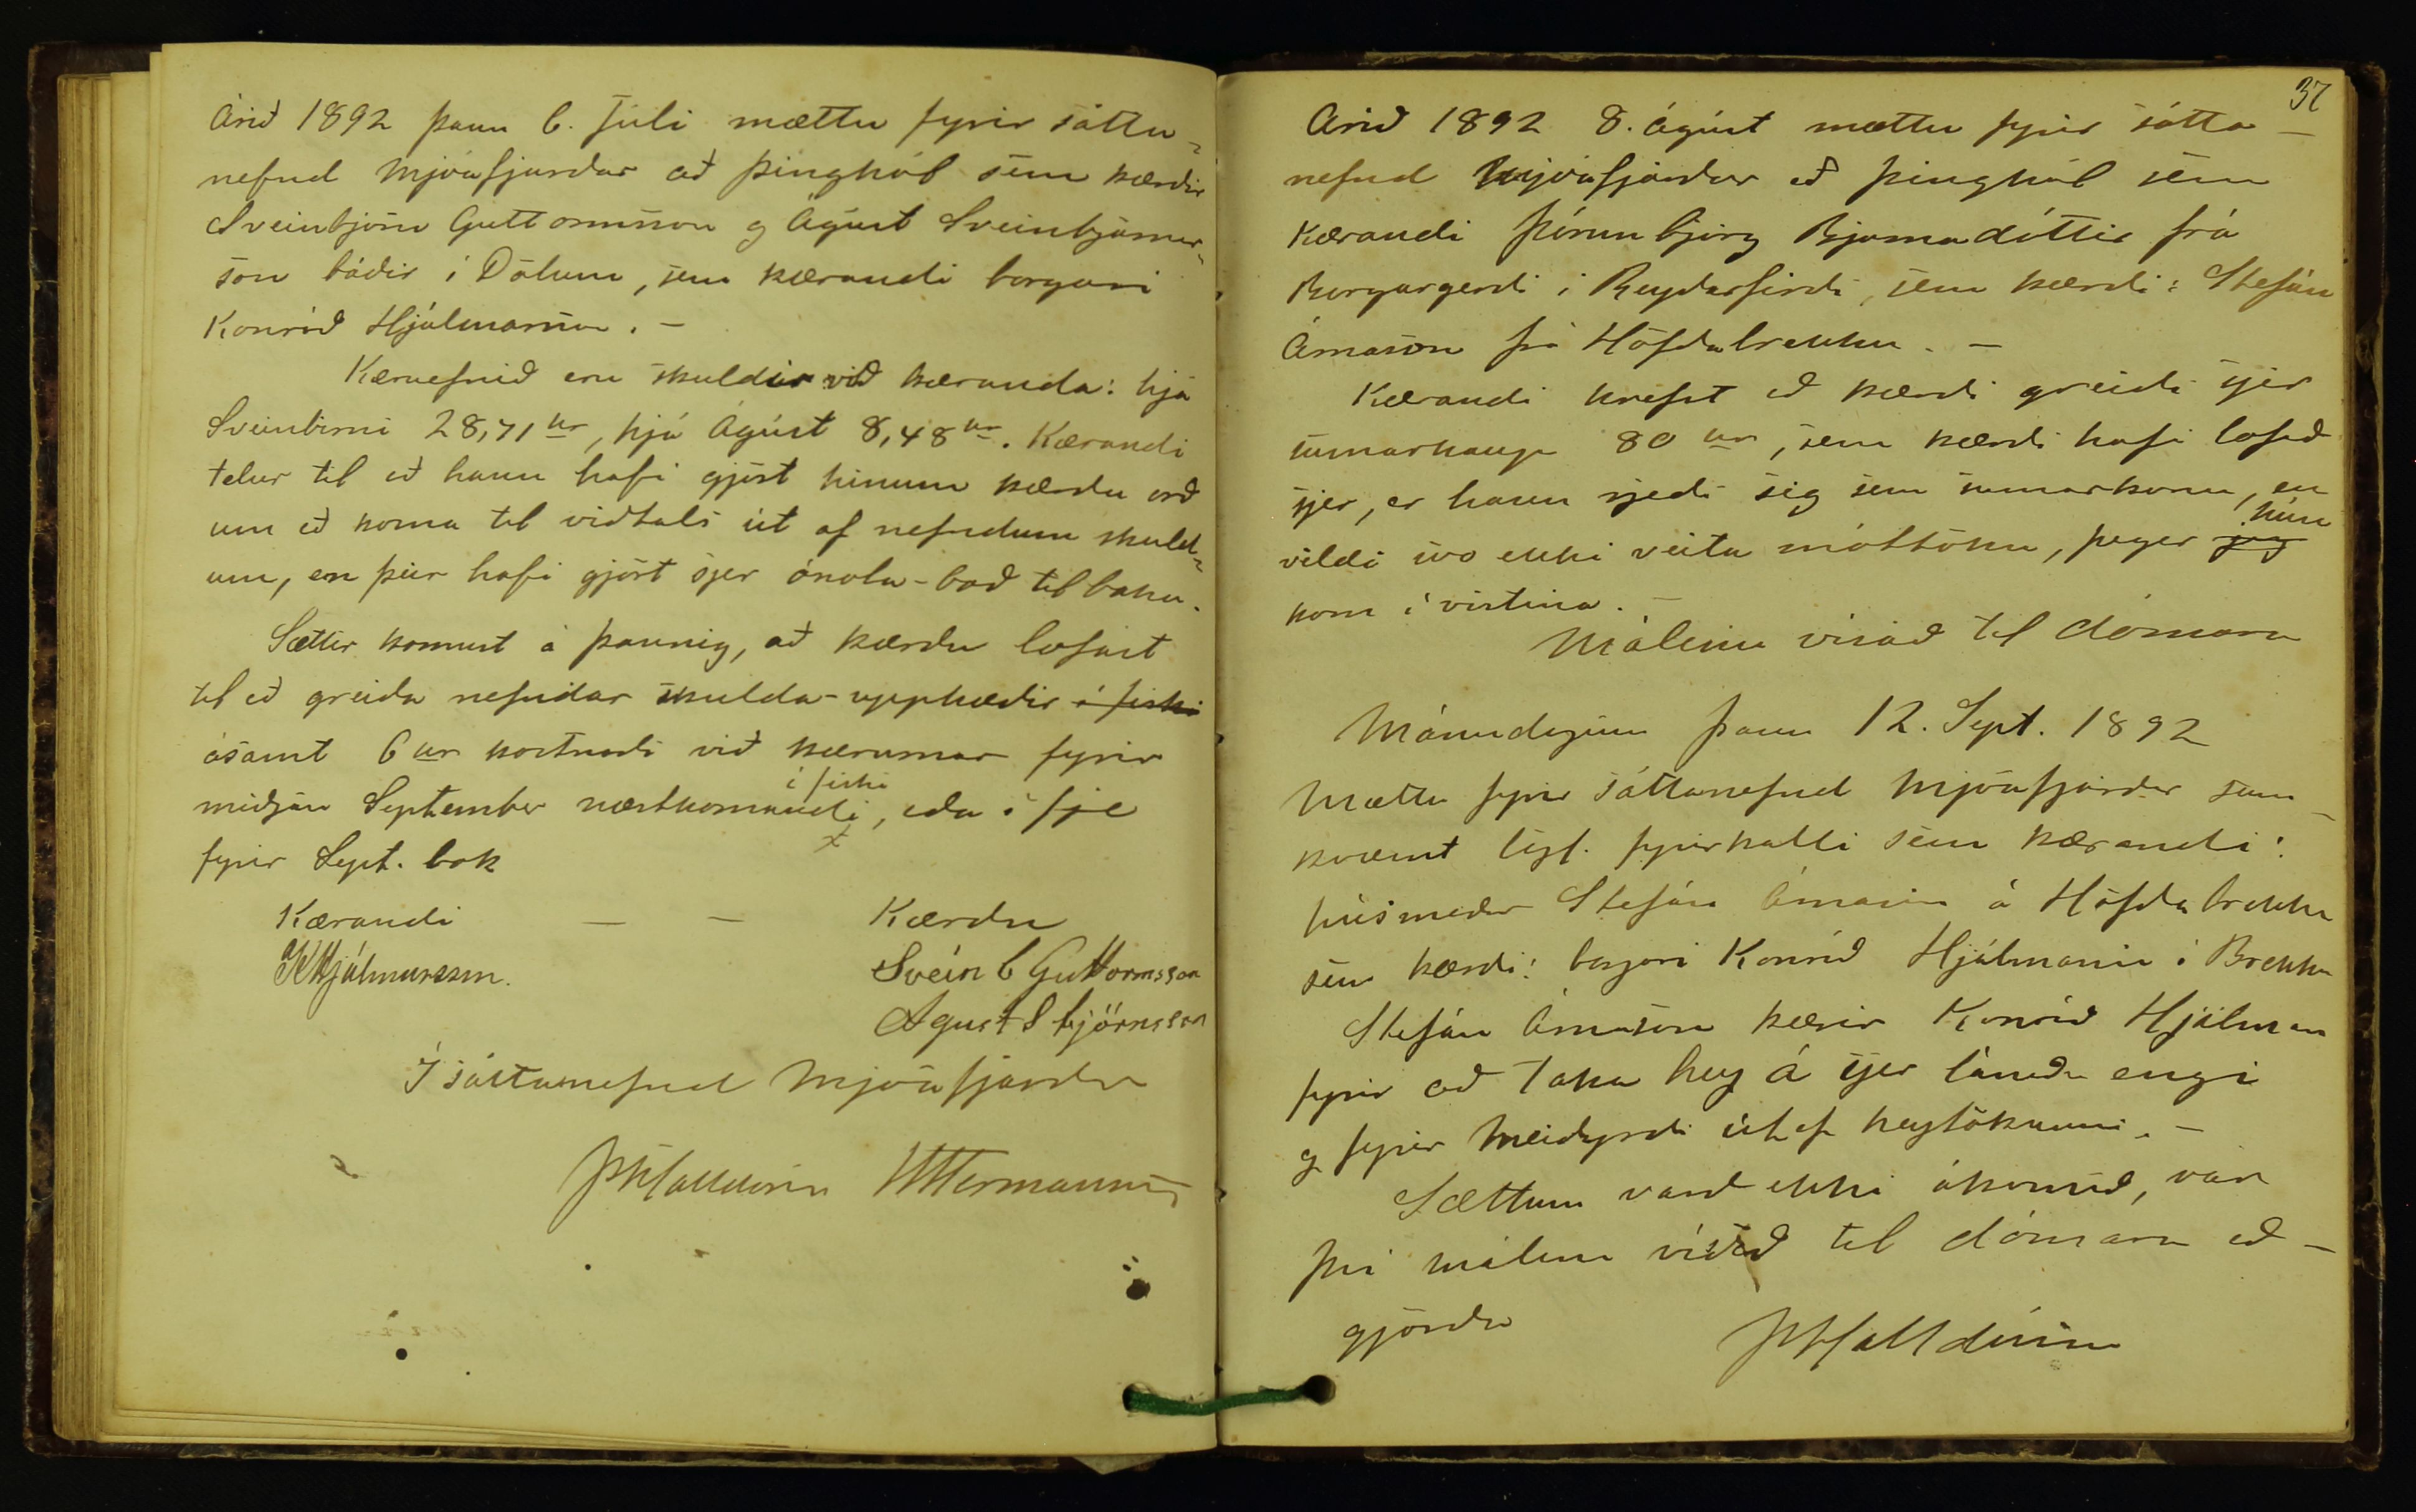 Árið 1892 þann 6. Júli mættu fyrir sátta-
nefnd Mjóafjarðar að þinghól sem kærðir
Sveinbjörn Guttormsson og Ágúst Sveinbjörns-
son báðir í Dölum, sem kærandi borgari
Konráð Hjálmarsson. –
Kæruefnið eru skuldir við kæranda: hjá
Sveinbirni 28,71 kr, hjá Ágúst 8,48 kr. Kærandi
telur til að hann hafi gjört hinum kærðu orð
um að koma til viðtals út af nefndum skuld-
um, en þeir hafi gjört sjer ónota-boð til baka.
Sættir komust á þannig, að kærðu lofast
til að greiða nefndar skulda-upphæðir í fiski
ásamt 6 kr kostnaði við kærurnar fyrir
miðjan September næstkomandi í fiski, eða í fje
fyrir Sept. lok
Kærandi – – Kærðu
KHjálmarsson. Sveinb Guttormsson
Agust S björnsson
Í sáttanefnd Mjóafjarðar
HHermannss
37
Árið 1892 8. ágúst mættu fyrir sátta-
nefnd Mjóafjarðar að þinghól sem
Kærandi Þórunnbjörg Bjarnadóttir frá
Borgargerði í Reyðarfirði, sem kærði: Stefán
Árnason frá Höfðabrekku. –
Kærandi krefst að kærði greiði sjer
sumarkaup 80 kr, sem kærði hafi lofað
sjer, er hann rjeði sig sem sumarkonu, en
vildi svo ekki veita móttöku, þegar jeg hún
kom í vistina. –
Málinu vísað til dómara
Mánudaginn þann 12. Sept. 1892
Mættu fyrir sáttanefnd Mjóafjarðar sam-
kvæmt lögl. fyrirkalli sem kærandi:
húsmaður Stefán Árnason á Höfðabrekku
sem kærði: borgari Konráð Hjálmarsson í Brekku
Stefán Árnason kærir Konráð Hjálmarss
fyrir að taka hey á sjer lánuðu engi
og fyrir meiðyrði útaf heytökunni. –
Sættum varð ekki ákomið, var
því málinu vísað til dómara að-
gjörða